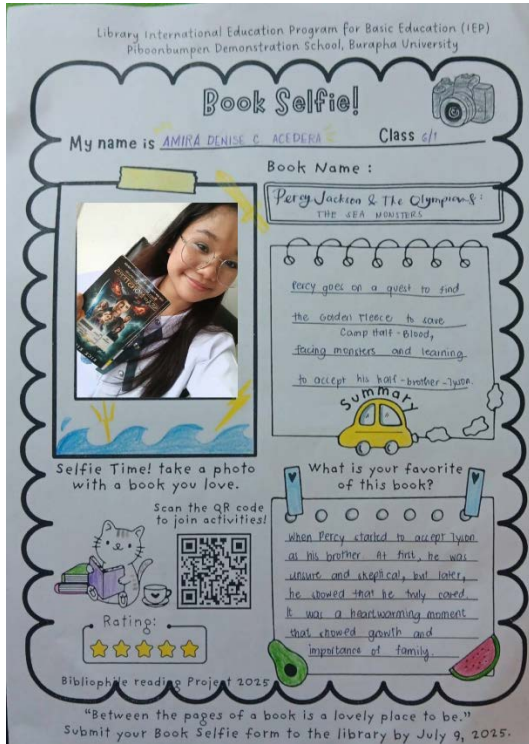 Library International Education Program for Basic Education (IEP)
Piboonbumpen Demonstration School, Burapha University
Book Selfie!
My name is AMIRA DENISE C. ACEDERA Class 6/1
Book Name :
Percy Jackson & The Olympians:
THE SEA MONSTERS
Percy goes on a quest to find
the Golden Fleece to save
Camp Half-Blood,
facing monsters and learning
to accept his half-brother-Tyson.
Summary
Selfie Time! take a photo
with a book you love.
Scan the QR code
to join activities!
Rating:
What is your favorite
of this book?
When Percy started to accept Tyson
as his brother. At first, he was
unsure and skeptical, but later,
he showed that he truly cared.
It was a heartwarming moment
that showed growth and
importance of family.
Bibliophile reading Project 2025
"Between the pages of a book is a lovely place to be."
Submit your Book Selfie form to the library by July 9, 2025.